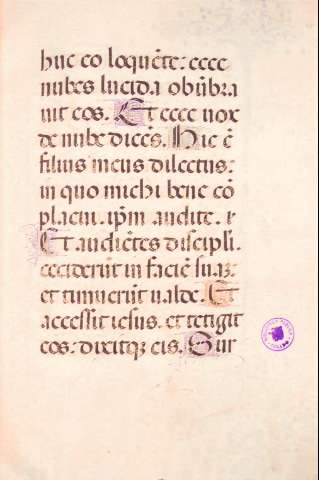 huc eo loquēte: ecce
nubes lucida obūbra
uit eos. Et ecce uox
de nube dicēs. Hic ē
filius meus dilectus:
in quo michi bene cō
placui. ipm audite.
Et audiētes discipli.
ceciderūt in faciē suaꝫ:
et timuerūt ualde. Et
accessit iesus. et tetigit
eos: dixitqꝫ eis. Sur